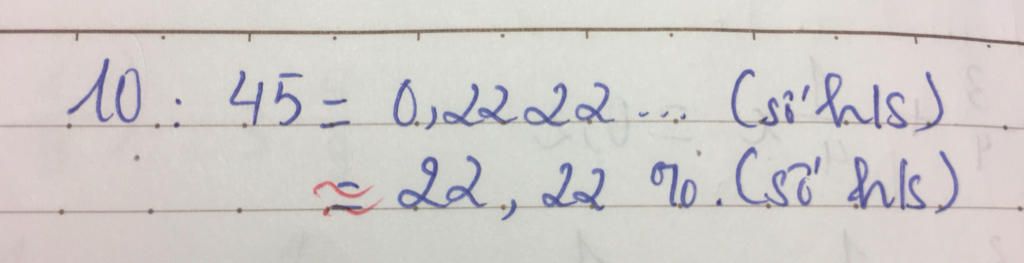 10 : 45 = 0,2222... (số h/s)
≈ 22,22 %. (số h/s)